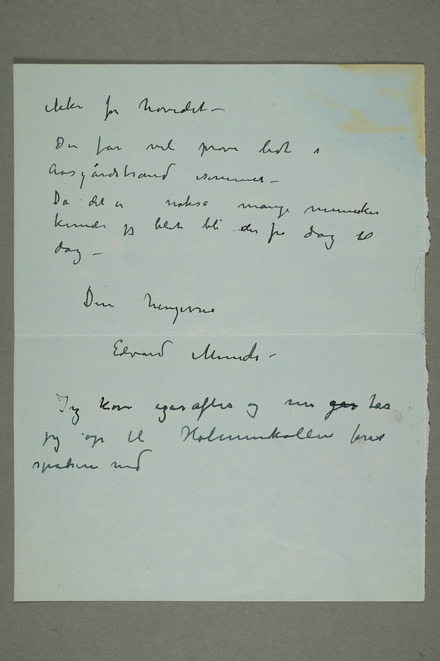 ikke for hovedet –
Du får vel prøve lidt i
Aasgårdstrand isommer –
Da det er nokså mange mennesker
kunde jeg blot bli der fra dag til
dag –
Din hengivne
Edvard Munch –
Jeg kom igåraftes og nu går tar
jeg op til Holmenkollen for at
spadsere ned